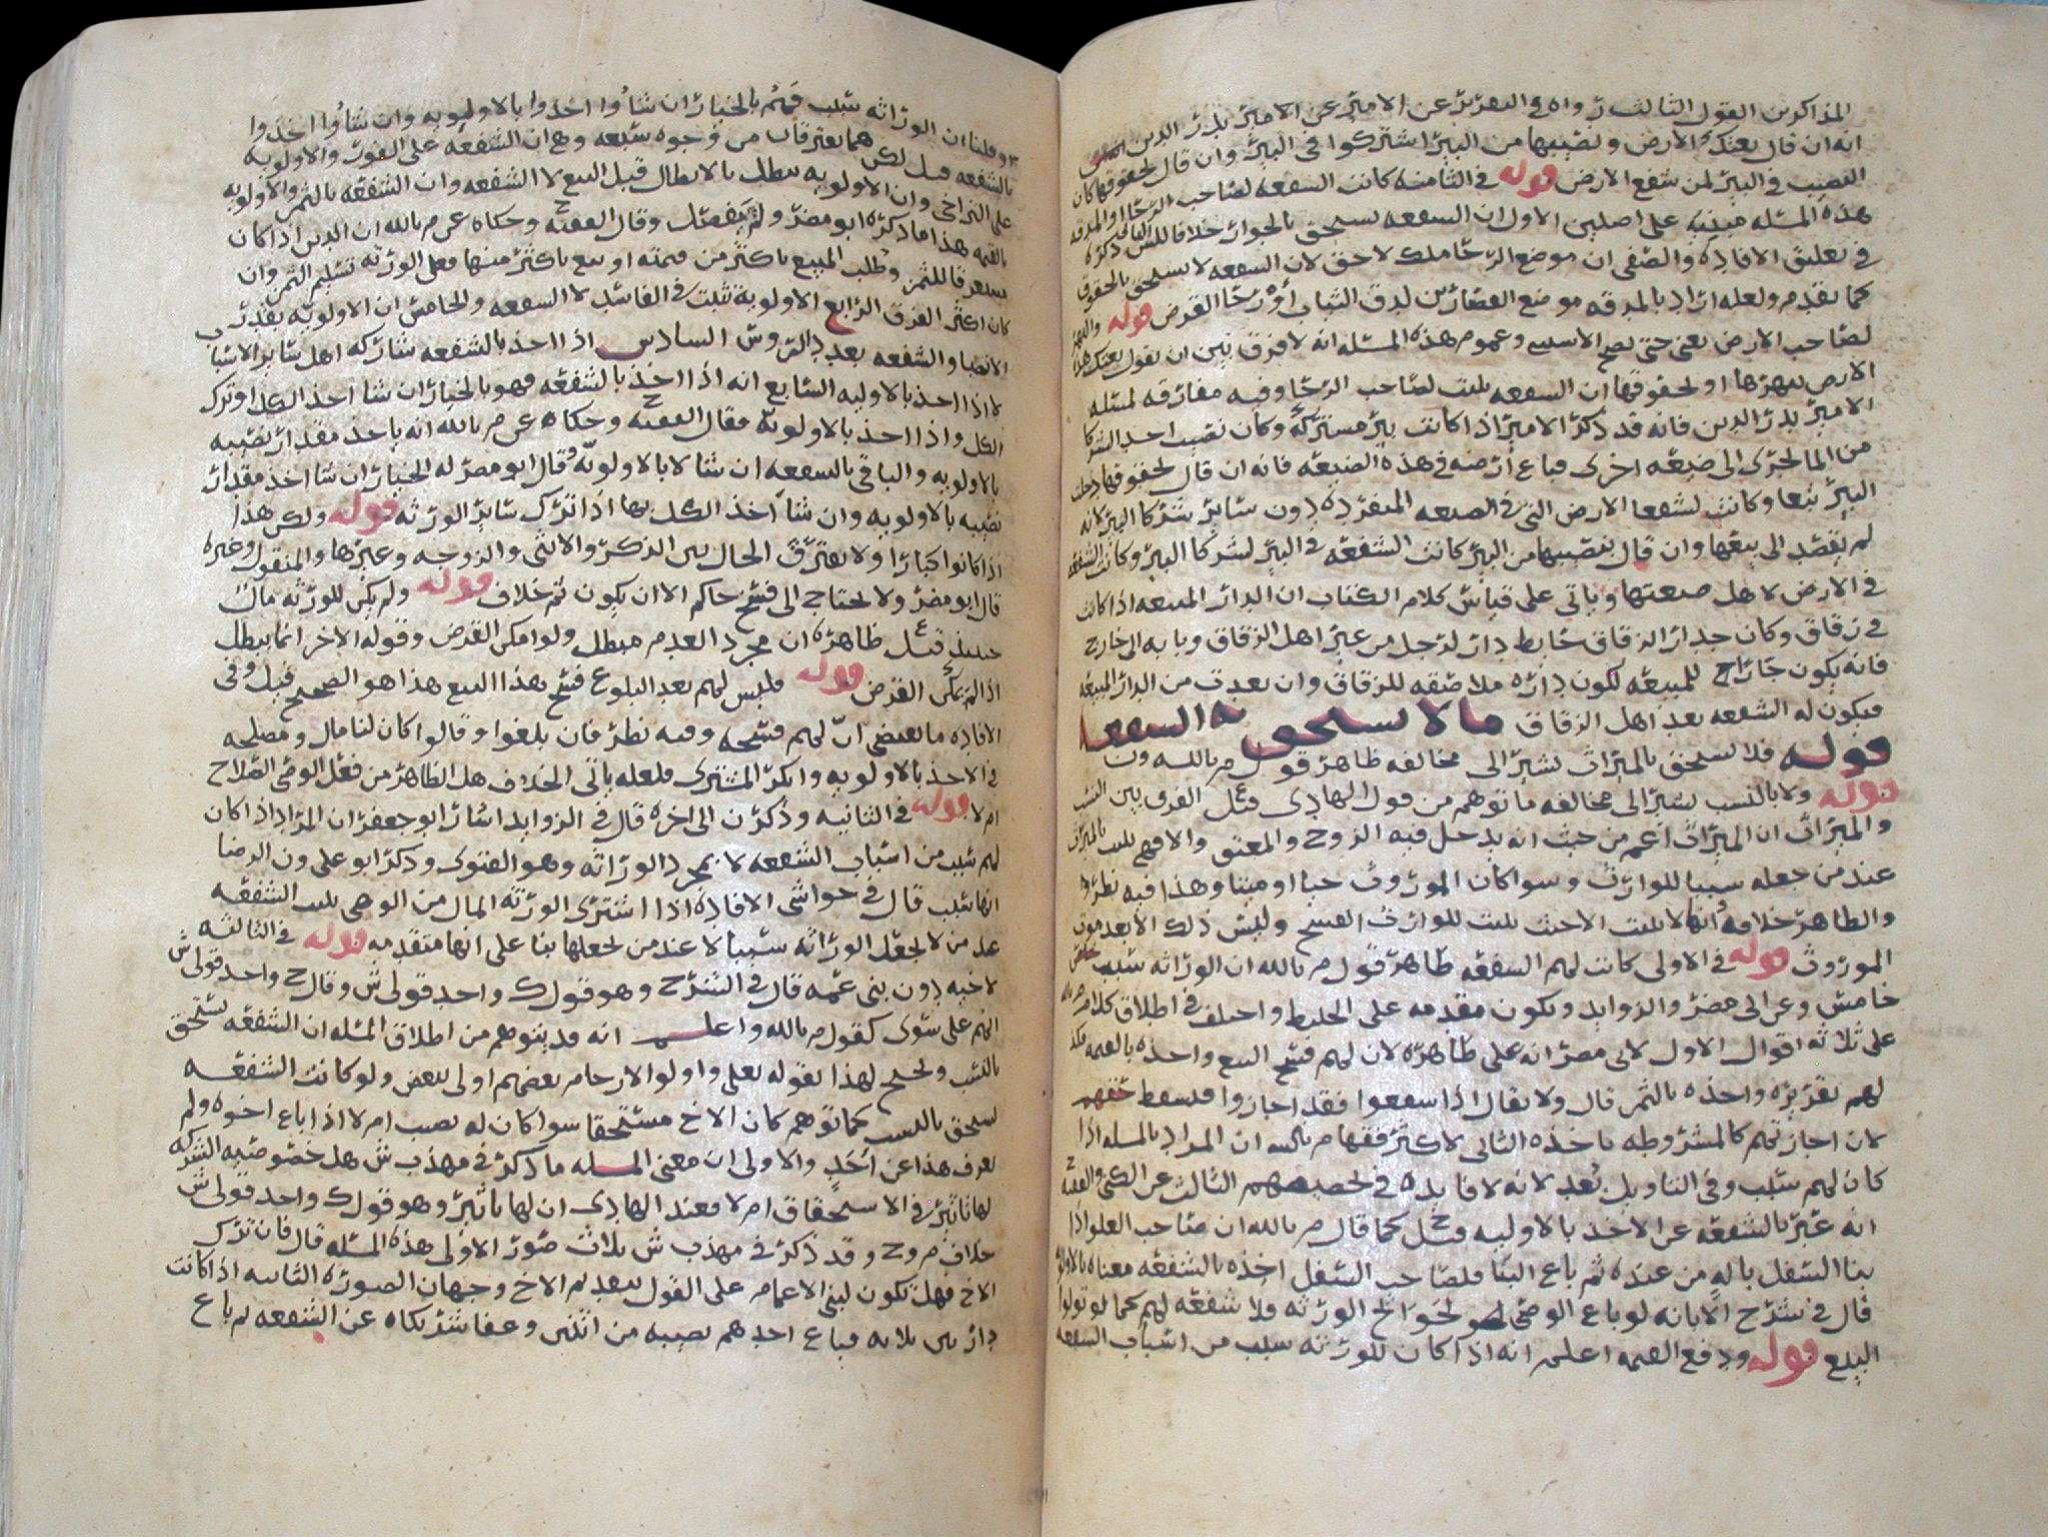 المذاكرون القول الثالث رواه في التقرير عن الامير عن الامير بدر الدين
انه ان قال بعتك الارض ونصيبها من البير اشتركوا في البير وان قال بحقوقها كان
النصيب في البير لمن شفع الارض قوله في الثامنه كانت الشفعه لصاحب الرحا او المدقه
هذه المسئله مبنيه على اصلين الاول ان الشفعه تستحق بالجوار خلافا للش الثاني ذكره
في تعليق الافاده والصفي ان موضع الرحا ملك لا حق لان الشفعه لا تستحق بالحقوق
كما تقدم ولعله اراد بالمدقه موضع العصارين لدق الثياب او رحا القرض قوله
لصاحب الارض يعني حتى يصح الاسم وعموم هذه المسئله انه لا فرق بين ان يقول بعتك هذا
الارض بنهرها او بحقوقها ان الشفعه تثبت لصاحب الرحا وفيه مفارقه لمسئله
الامير بدر الدين فانه قد ذكر الامير اذا كانت بير مشتركة وكان نصيب احد الشركا
من الما يجري الى ضيعه اخرى فباع ارضه في هذه الضيعه فانه ان قال بحقوقها دخلت
البير تبعا وكانت لشفعا الارض التي في الضيعه المنفرده دون سائر شركا البير لانه
لم يقصد الى بيعها وان قال بنصيبها من البير كانت الشفعه في البير لشركا البير وكانت الشفعه
في الارض لاهل ضيعتها وياتي على قياس كلام الكتاب ان الدار المبيعه اذا كانت
في زقاق وكان جدار الزقاق حايط دار لرجل من غير اهل الزقاق وبابه الى خارج
فانه يكون جارا للمبيعه لكون داره ملاصقه للزقاق وان بعدت من الدار المبيعه
فيكون له الشفعه بعد اهل الزقاق ما لا يستحق به الشفعه
قوله فلا تستحق بالميراث يشير الى مخالفه ظاهر قول م بالله ون
قوله ولا بالنسب يشير الى مخالفه ما توهم من قول الهادي قيل ع الفرق بين النسب
والميراث ان الميراث اعم من حيث انه يدخل فيه الزوج والمعتق والافهي تثبت بالميراث
عند من جعله سببا للوارث وسوا كان الموروث حيا او ميتا وهذا فيه نظر
والظاهر خلافه وانها لا تثبت الا حيث يثبت للوارث الفسخ وليس ذلك الا بعد موت
الموروث قوله في الاولى كانت لهم الشفعه ظاهر قول م بالله ان الوراثه سبب
خامس وعن ابي مضر والزوايد وتكون مقدمه على الخليط واختلف في اطلاق كلام م بالله
على ثلاثه اقوال الاول لابي مضر انه على ظاهره لان لهم فسخ البيع واخذه بالقيمه
لهم تقريره واخذه بالثمن قال ولا يقال اذا شفعوا فقد اجازوا فيسقط حقهم
لان اجازتهم كالمشروطه باخذه الثاني لاكثر فقها م بالله ان المراد بالمسله اذا
كان لهم سبب وفي التاويل بُعد لانه لا فايده في تخصيصهم الثالث عن الكني والفقيه ح
انه عبر بالشفعه عن الاخذ بالاوليه قيل ح كما قال م بالله ان صاحب العلو اذا
بنا السفل باله من عنده ثم باع البنا فلصاحب السفل اخذه بالشفعه معناه بالاولويه
قال في شرح الابانه لو باع الوصي لحوايج الورثه فلا شفعه لهم كما لو تولوا
البيع قوله ودفع القيمه اعلم انه اذا كان للورثه سبب من اسباب الشفعه
وقلنا ان الوراثه سبب فهم بالخيار ان شاوا اخذوا بالاولويه وان شاوا اخذوا
بالشفعه قيل لكن هما يفترقان من وجوه سبعه وهي ان الشفعه على الفور والاولويه
على التراخي وان الاولويه تبطل بالابطال قبل البيع لا الشفعه وان الشفعه بالثمن والاولويه
بالقيمه هذا ما ذكره ابو مضر ولم يفصل وقال الفقيه ح وحكاه عن م بالله ان الدين اذا كان
مستغرقا للثمن وطلب المبيع باكثر من قيمته او بيع باكثر منها فعلى الورثه تسليم الثمن وان
كان اكثر الفرق الرابع الاولوية تثبت في الفاسد لا الشفعه والخامس ان الاولويه بقدر
الانصبا والشفعه بعدد الروس السادس اذا اخذ بالشفعه شاركه اهل سائر الاسباب
لا اذا اخذ بالاوليه السابع انه اذا اخذ بالشفعه فهو بالخيار ان شا اخذ الكل او ترك
الكل واذا اخذ بالاولويه فقال الفقيه ح وحكاه عن م بالله انه ياخذ مقدار نصيبه
بالاولويه والباقي بالشفعه ان شا لا بالاولويه وقال ابو مضر له الخيار ان شا اخذ مقدار
نصيبه بالاولويه وان شا اخذ الكل بها اذا ترك سائر الورثه قوله ولكن هذا
اذا كانوا كبارا ولا يفترق الحال بين الذكر والانثى والزوجه وغيرها والمنقول وغيره
قال ابو مضر ولا يحتاج الى فسخ حاكم الا ان يكون ثم خلاف قوله ولم يكن للورثه مال
حينئذ قيل ع ظاهره ان مجرد العدم مبطل ولو امكن القرض وقوله الاخر انما يبطل
اذا لم يمكن القرض قوله فليس لهم بعد البلوغ فسخ هذا البيع هذا هو الصحيح قيل وفي
الافاده ما يقتضي ان لهم فسخه وفيه نظر فان بلغوا وقالوا كان لنا مال ومصلحه
في الاخذ بالاولويه وانكر المشتري فلعله ياتي الخلاف هل الظاهر من فعل الوصي الصلاح
ام لا قوله في الثانيه وذكر ن الى اخره قال في الزوايد اشار ابو جعفر ان المراد اذا كان
لهم سبب من اسباب الشفعه لا بمجرد الوراثه وهو الفتوى وذكر ابو علي ون الرضا
انها سبب قال في حواشي الافادة اذا اشترى الورثه المال من الوصي تثبت الشفعه
عند من لا يجعل الوراثه سببا لا عند من يجعلها بنا على انها متقدمه قوله في الثالثه
لاخيه دون بني عمه قال في الشرح وهو قول ك واحد قولي ش وقال ح واحد قولي ش
انهم على سوى كقول م بالله واعلم انه قد يتوهم من اطلاق المسله ان الشفعه تستحق
بالنسب ويحتج لهذا بقوله تعلى واولوا الارحام بعضهم اولى ببعض ولو كانت الشفعه
تستحق بالنسب كما توهم كان الاخ مستحقا سوا كان له نصيب ام لا اذا باع اخوه ولم
يعرف هذا عن احد والاولى ان معنى المسله ما ذكر في مهذب ش هل خصوصيه الشركه
لها تاثير في الاستحقاق ام لا فعند الهادي ان لها تاثير وهو قول ك واحد قولي ش
خلاف م وح وقد ذكر في مهذب ش ثلاث صور الاولى هذه المسئله قال فان ترك
الاخ فهل تكون لبني الاعمام على القول بتقديم الاخ وجهان الصورة الثانيه اذا كانت
دار بين ثلاثه فباع احدهم نصيبه من اثنين وعفا شريكاه عن الشفعه ثم باع